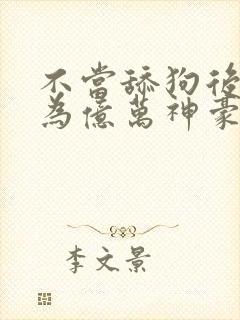 不當舔狗後
為億萬神豪
李文景